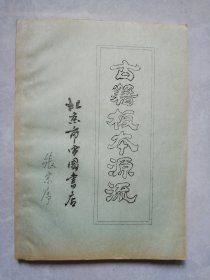 古籍板本源流
北京市中国书店
张宗序